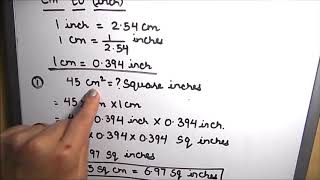 cm to (inch)
1 inch = 2.54 cm
1 cm = 1/2.54 inches
1 cm = 0.394 inch
① 45 cm² = ? Square inches
= 45 cm × 1 cm
= 45 × 0.394 inch × 0.394 inch.
× 0.394 × 0.394 Sq inches
97 Sq inches
sq cm = 6.97 Sq inches